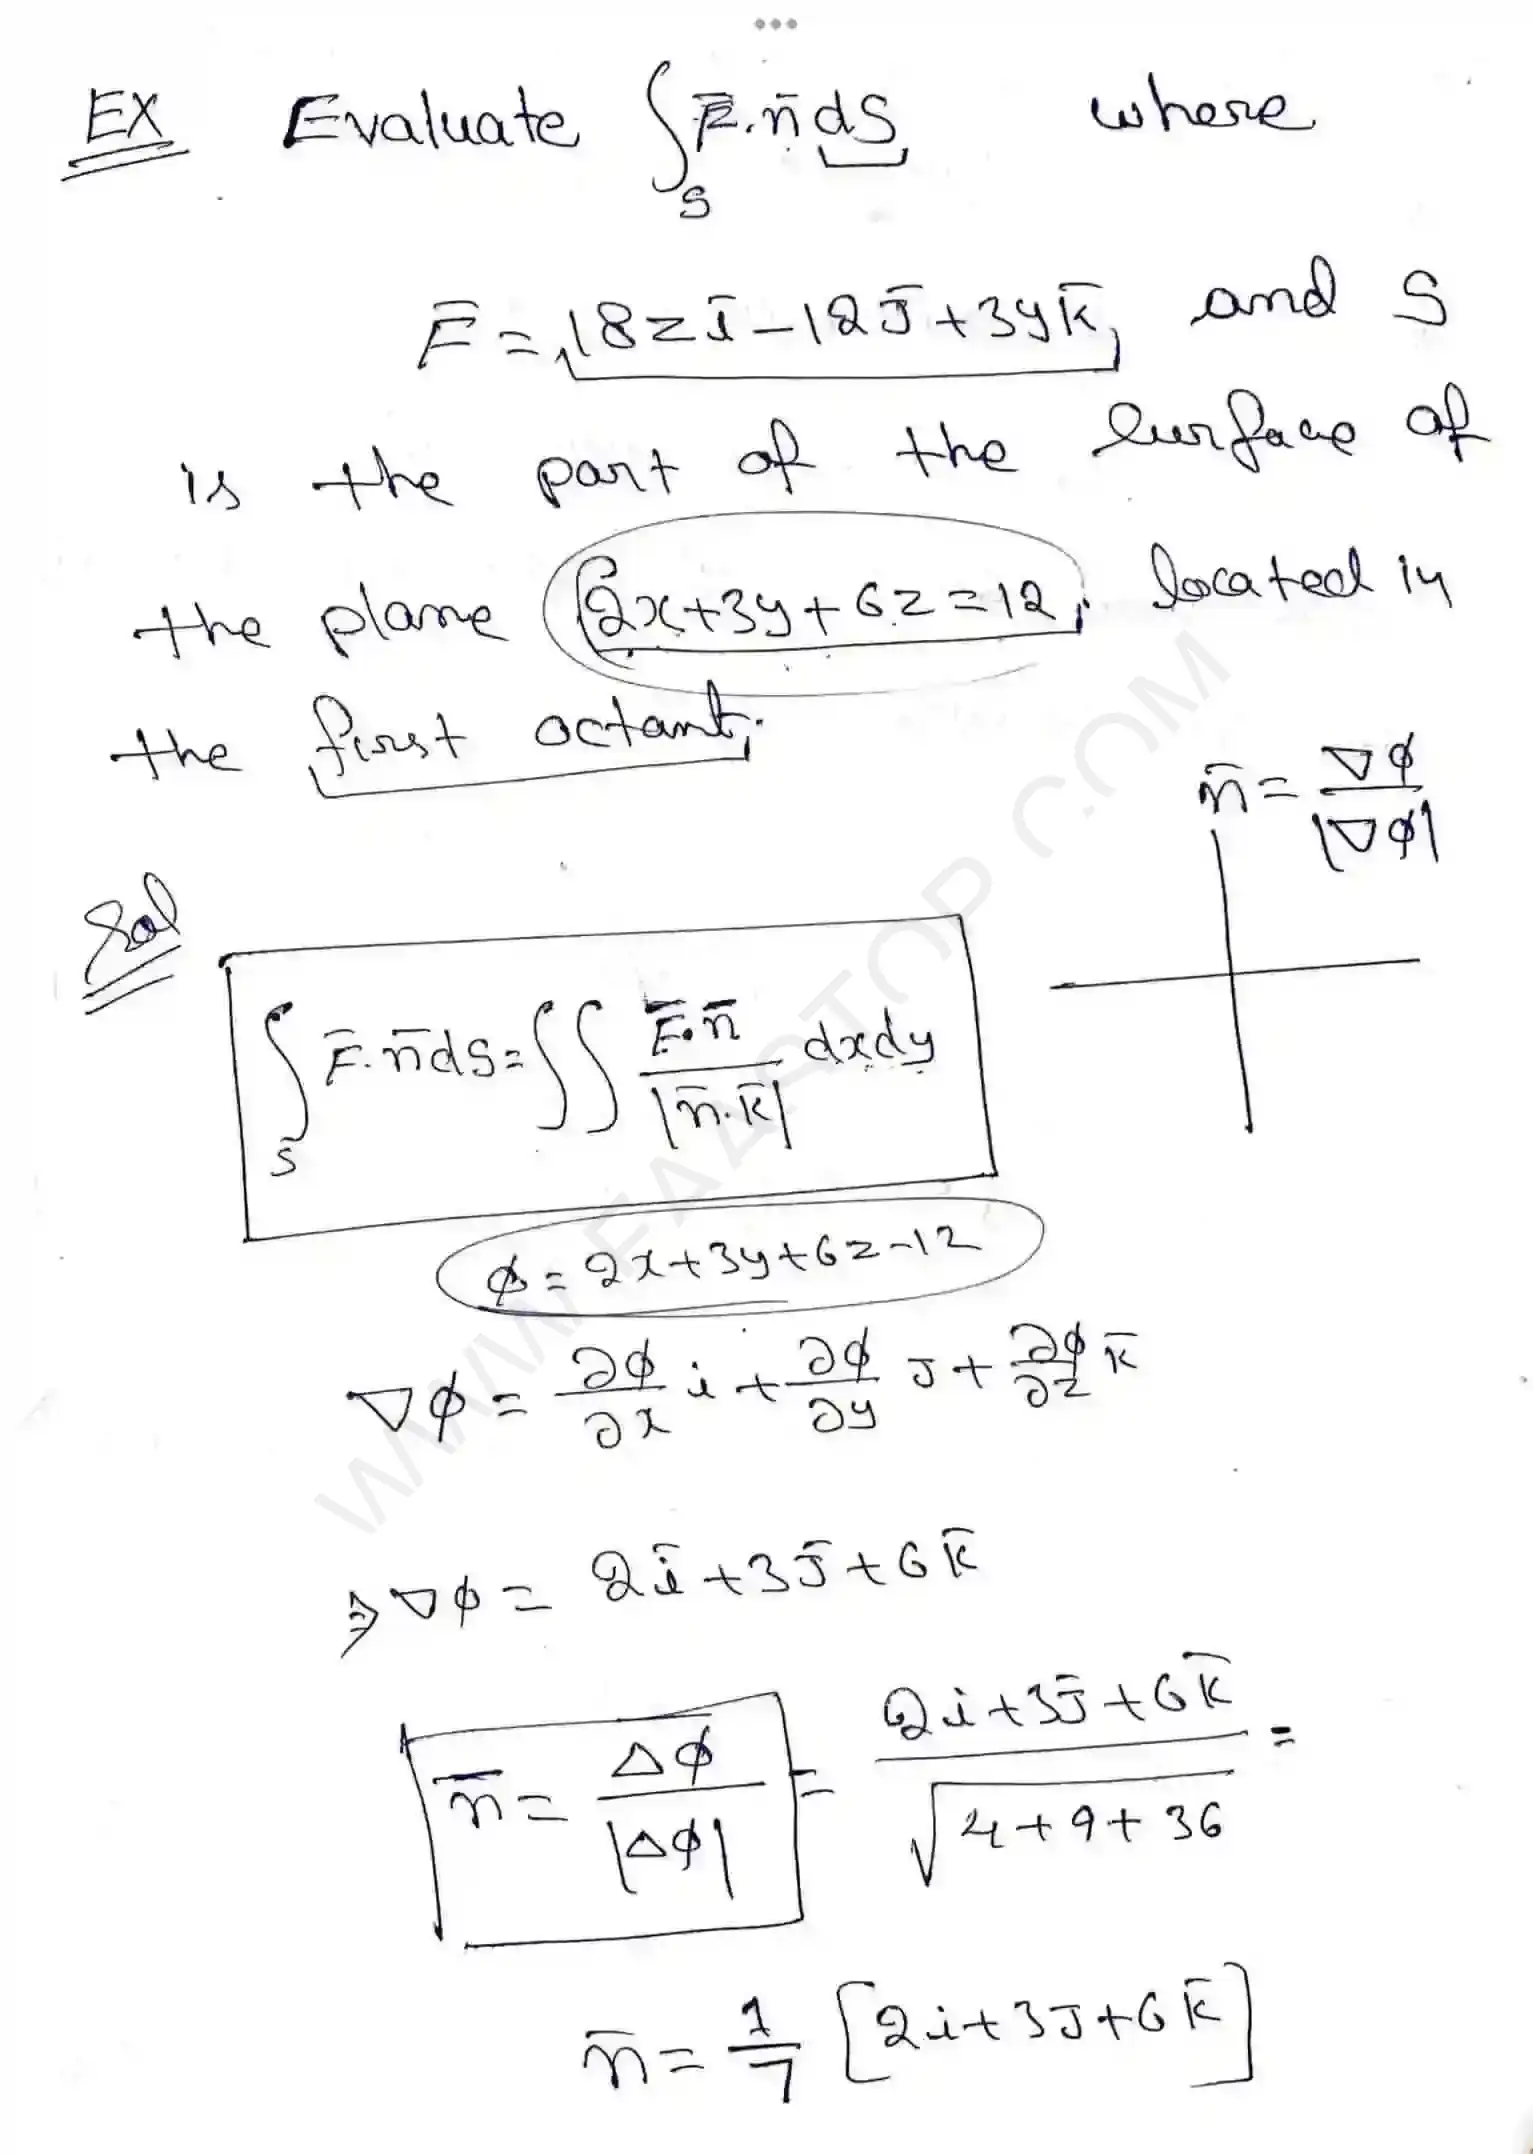 EX Evaluate ∫_S F̄.n̄ dS where
F̄ = 18z ī - 12 j̄ + 3y k̄, and S
is the part of the surface of
the plane 2x+3y+6z=12, located in
the first octant.
n̄ = ∇φ / |∇φ|
Sol
∫_S F̄.n̄ dS = ∫∫ F̄.n̄ / |n̄.k̄| dxdy
φ = 2x+3y+6z-12
∇φ = ∂φ/∂x i + ∂φ/∂y J + ∂φ/∂z k̄
⇒ ∇φ = 2ī + 3J̄ + 6k̄
n̄ = Δφ / |Δφ| = 2i+3J̄+6k̄ / √4+9+36 =
n̄ = 1/7 [2i+3J+6k̄]
WWW.FAASTOP.COM